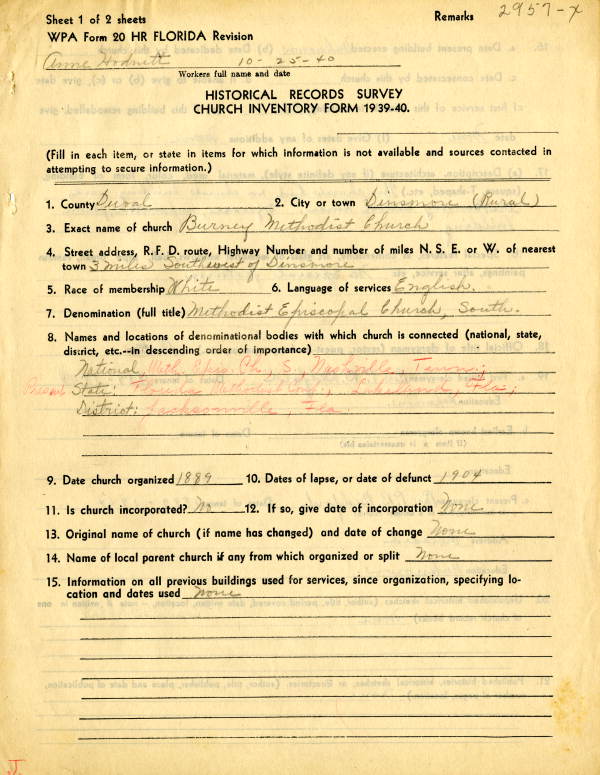 Sheet 1 of 2 sheets
Remarks 2957-x
WPA Form 20 HR FLORIDA Revision
Anne Hodnett 10-25-40
Workers full name and date
HISTORICAL RECORDS SURVEY
CHURCH INVENTORY FORM 1939-40.
(Fill in each item, or state in items for which information is not available and sources contacted in
attempting to secure information.)
1. County Duval 2. City or town Dinsmore (Rural)
3. Exact name of church Burney Methodist Church
4. Street address, R. F. D. route, Highway Number and number of miles N. S. E. or W. of nearest
town 3 miles Southwest of Dinsmore
5. Race of membership White 6. Language of services English.
7. Denomination (full title) Methodist Episcopal Church, South.
8. Names and locations of denominational bodies with which church is connected (national, state,
district, etc.--in descending order of importance)
National, Meth. Epis. Ch., S., Nashville, Tenn.;
Present State: Florida Methodist Conf., Lakeland, Fla.;
District: Jacksonville, Fla
9. Date church organized 1889 10. Dates of lapse, or date of defunct 1904
11. Is church incorporated? No 12. If so, give date of incorporation None
13. Original name of church (if name has changed) and date of change None
14. Name of local parent church if any from which organized or split None
15. Information on all previous buildings used for services, since organization, specifying lo-
cation and dates used None